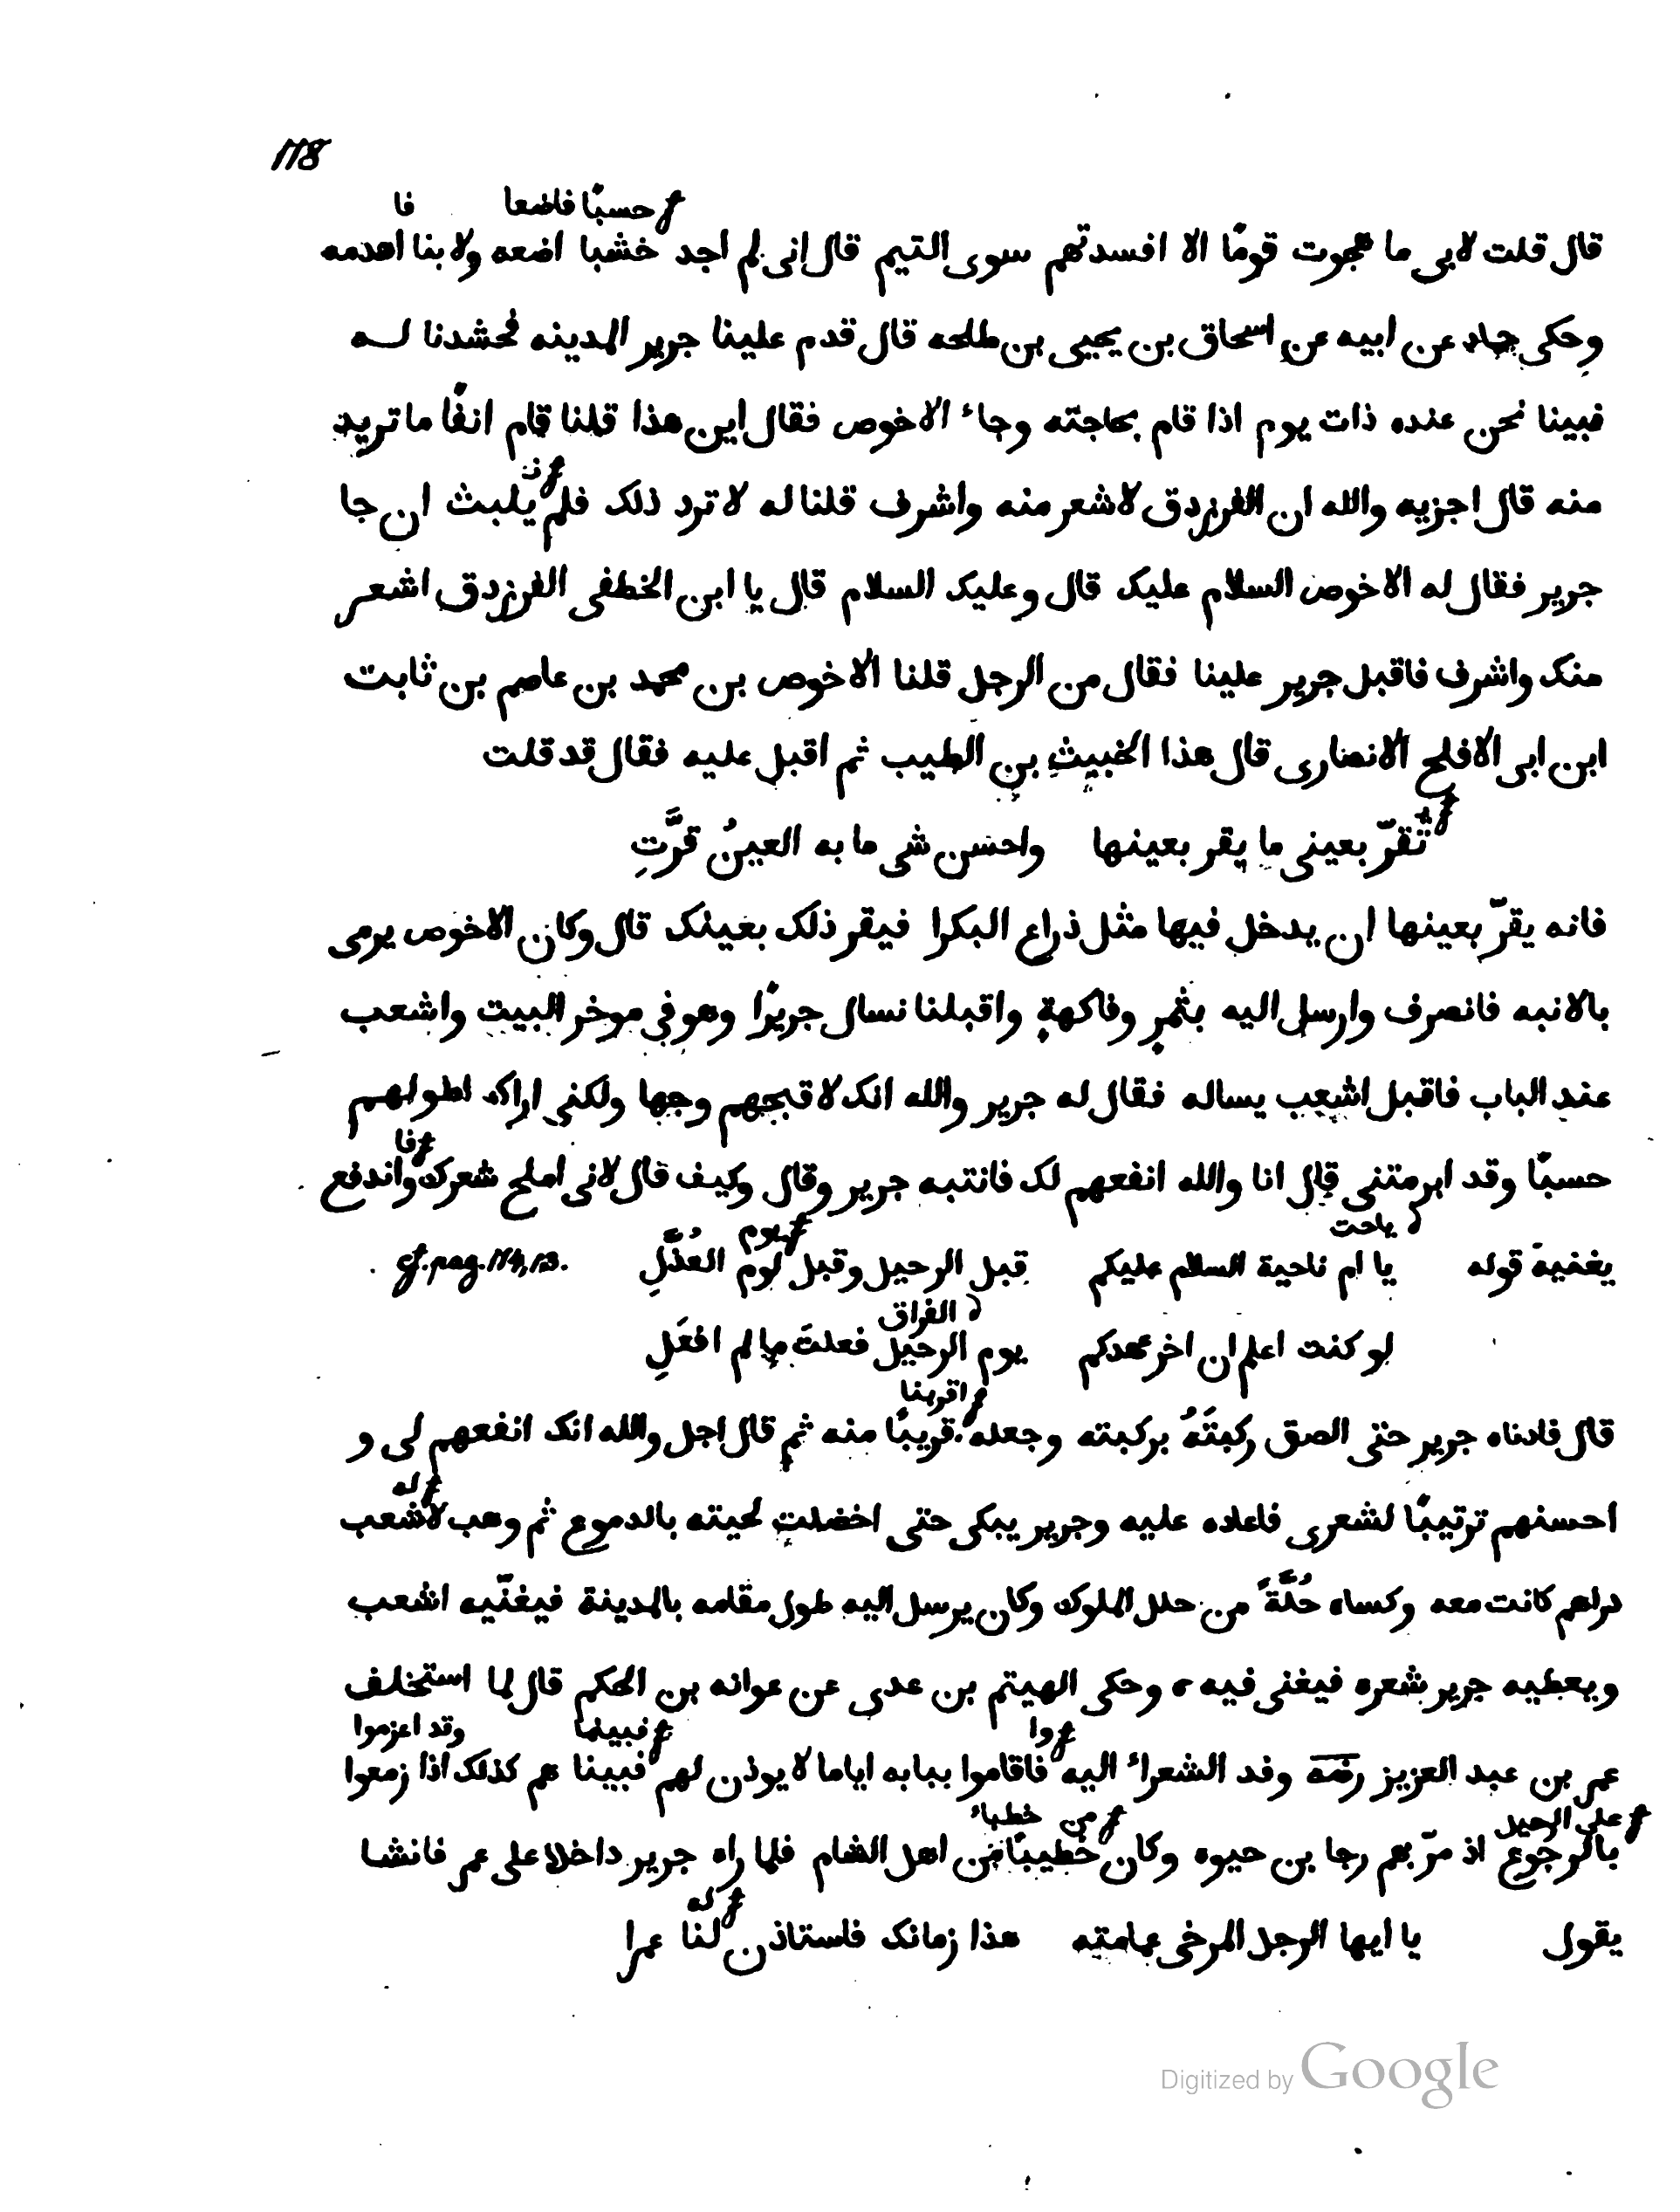 118
f حسبًا فاضعا فا
قال قلت لابى ما هجوت قومًا الا افسدتهم سوى التيم قال انى لم اجد خشبا اضعه ولا بنا اهدمه
وحكى حماد عن ابيه عن اسحاق بن يحيى بن طلحه قال قدم علينا جرير المدينه فحشدنا له
فبينا نحن عنده ذات يوم اذا قام بحاجته وجاء الاخوص فقال اين هذا قلنا قام انفًا ما تريد
f ن
منه قال اجزيه والله ان الفرزدق لاشعر منه واشرف قلنا له لا ترد ذلك فلم يلبث ان جا
جرير فقال له الاخوص السلام عليك قال وعليك السلام قال يا ابن الخطفى الفرزدق اشعر
منك واشرف فاقبل جرير علينا فقال من الرجل قلنا الاخوص بن محمد بن عاصم بن ثابت
ابن ابى الافلح الانصارى قال هذا الخبيث بن الطيب ثم اقبل عليه فقال قد قلت
تقرّ بعينى ما يقر بعينها واحسن شى ما به العينُ قرَّتِ
فانه يقرّ بعينها ان يدخل فيها مثل ذراع البكرا فيقر ذلك بعينك قال وكان الاخوص يرمى
بالانبه فانصرف وارسل اليه بثمرٍ وفاكهةٍ واقبلنا نسال جريرًا وهو فى موخر البيت واشعب
عند الباب فاقبل اشعب يساله فقال له جرير والله انك لاقبحهم وجها ولكنى اراك اطولهم
f فا
حسبًا وقد ابرمتنى قال انا والله انفعهم لك فانتبه جرير وقال وكيف قال لانى املح شعرك واندفع
ياحت f يوم
يغنيه قوله يا ام ناحية السلام عليكم قبل الرحيل وقبل لوم العُذَّلِ cf. pag. 114, 13.
الفراق
لو كنت اعلم ان اخر عهدكم يوم الرحيل فعلتَ ما لم افعَلِ
f اقربنا
قال فادناه جرير حتى الصق ركبتَهُ بركبته وجعله قريبًا منه ثم قال اجل والله انك انفعهم لى و
f له
احسنهم ترتيبًا لشعرى فاعاده عليه وجرير يبكى حتى اخضلت لحيته بالدموع ثم وهب لاشعب
دراهم كانت معه وكساه حُلَّةً من حلل الملوك وكان يرسل اليه طول مقامه بالمدينة فيغنّيه اشعب
ويعطيه جرير شعره فيغنى فيه ه وحكى الهيتم بن عدى عن عوانه بن الحكم قال لما استخلف
f وا f فبينما وقد اعزموا
عمر بن عبد العزيز رضه وفد الشعراء اليه فاقاموا ببابه اياما لا يوذن لهم فبينا هم كذلك اذا زمعوا
f على الرحيل f من خطباء
بالرجوع اذ مرّ بهم رجا بن حيوه وكان خطيبًا من اهل الشام فلما راه جرير داخلا على عمر فانشا
f له
يقول يا ايها الرجل المرخى عمامته هذا زمانك فاستاذن لنا عمرا
Digitized by Google